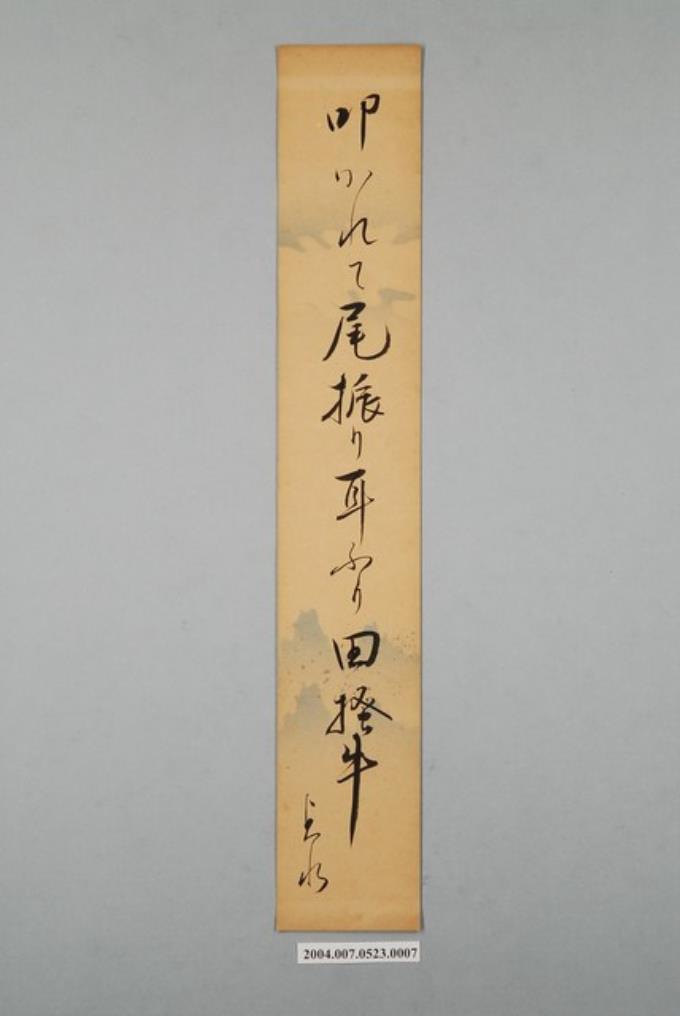 叩かれて尾振り耳ふり田掻牛
2004.007.0523.0007